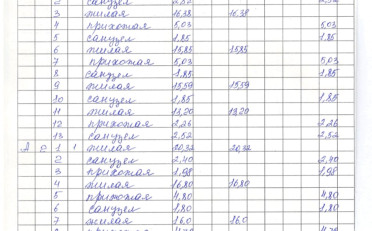 2 санузел 2,52 2,52
3 жилая 16,38 16,38
4 прихожая 5,03 5,03
5 санузел 1,85 1,85
6 жилая 15,85 15,85
7 прихожая 5,03 5,03
8 санузел 1,85 1,85
9 жилая 15,59 15,59
10 санузел 1,85 1,85
11 жилая 13,20 13,20
12 прихожая 2,26 2,26
13 санузел 2,52 2,52
1 жилая 20,32 20,32
2 санузел 2,40 2,40
3 прихожая 1,98 1,98
4 жилая 16,80 16,80
5 прихожая 4,80 4,80
6 санузел 1,80 1,80
7 жилая 16,0 16,0